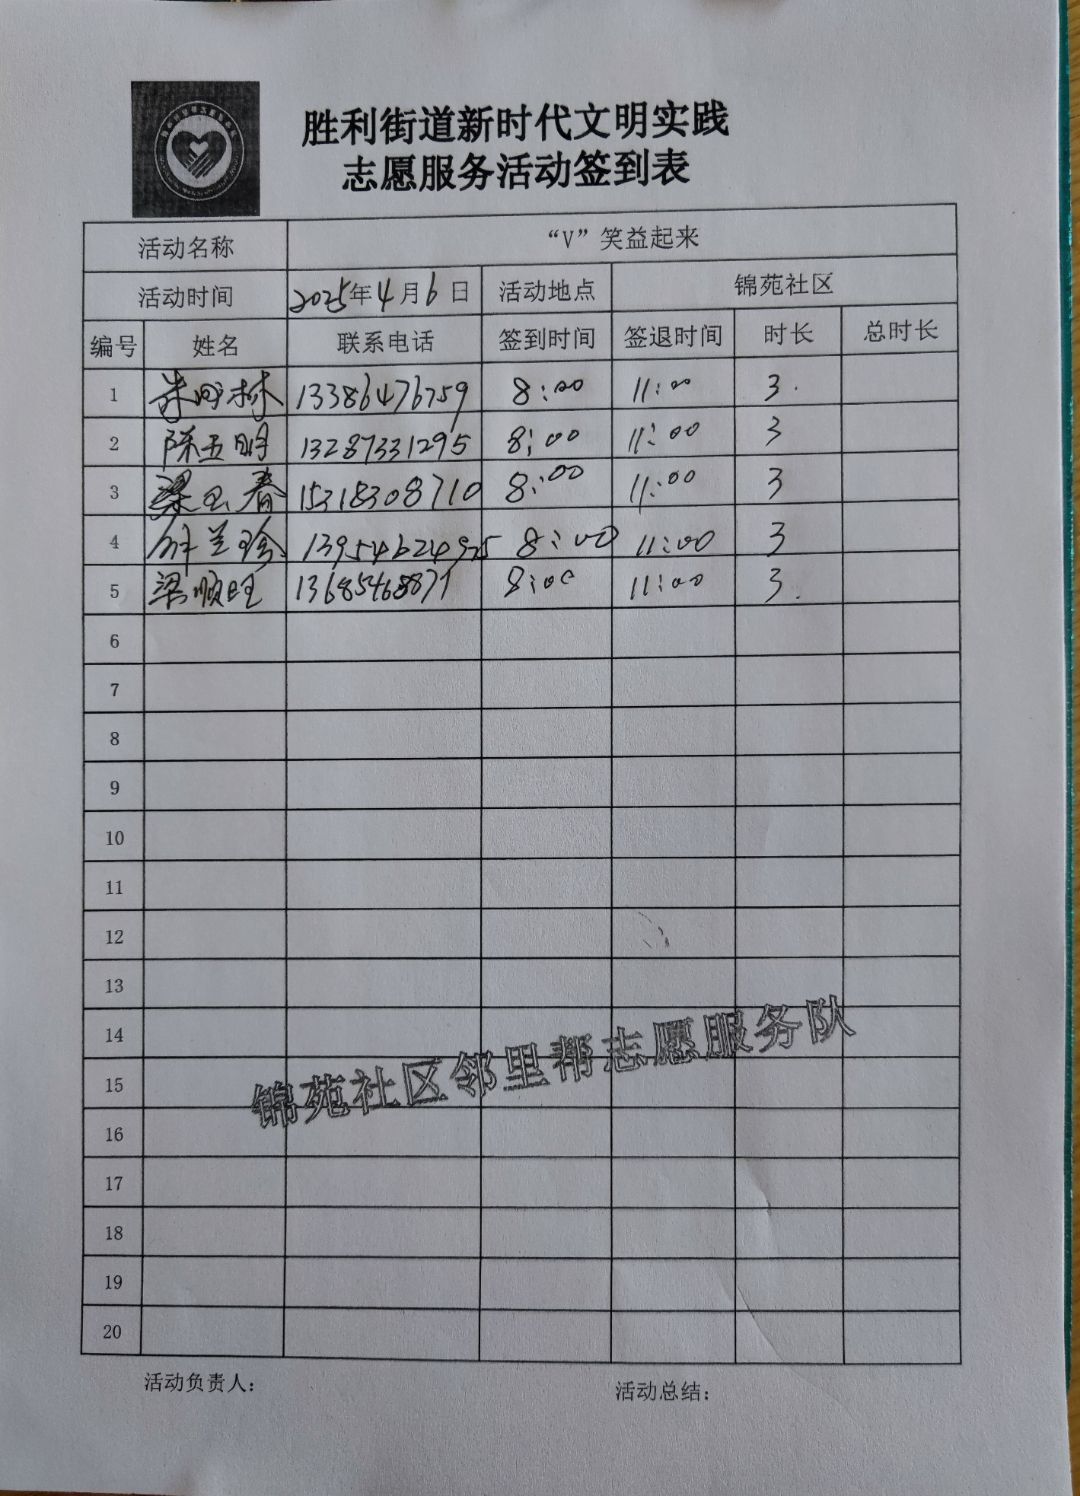 胜利街道新时代文明实践
志愿服务活动签到表
活动名称 “V”笑益起来
活动时间 2025年4月6日 活动地点 锦苑社区
编号 姓名 联系电话 签到时间 签退时间 时长 总时长
1 林 13386476759 8:00 11:00 3.
2 陈玉明 13287331295 8:00 11:00 3
3 梁玉春 15318308710 8:00 11:00 3
4 兰珍 13954624925 8:00 11:00 3
5 梁顺旺 13685468871 8:00 11:00 3.
6
7
8
9
10
11
12
13
14
15
锦苑社区邻里帮志愿服务队
16
17
18
19
20
活动负责人： 活动总结：